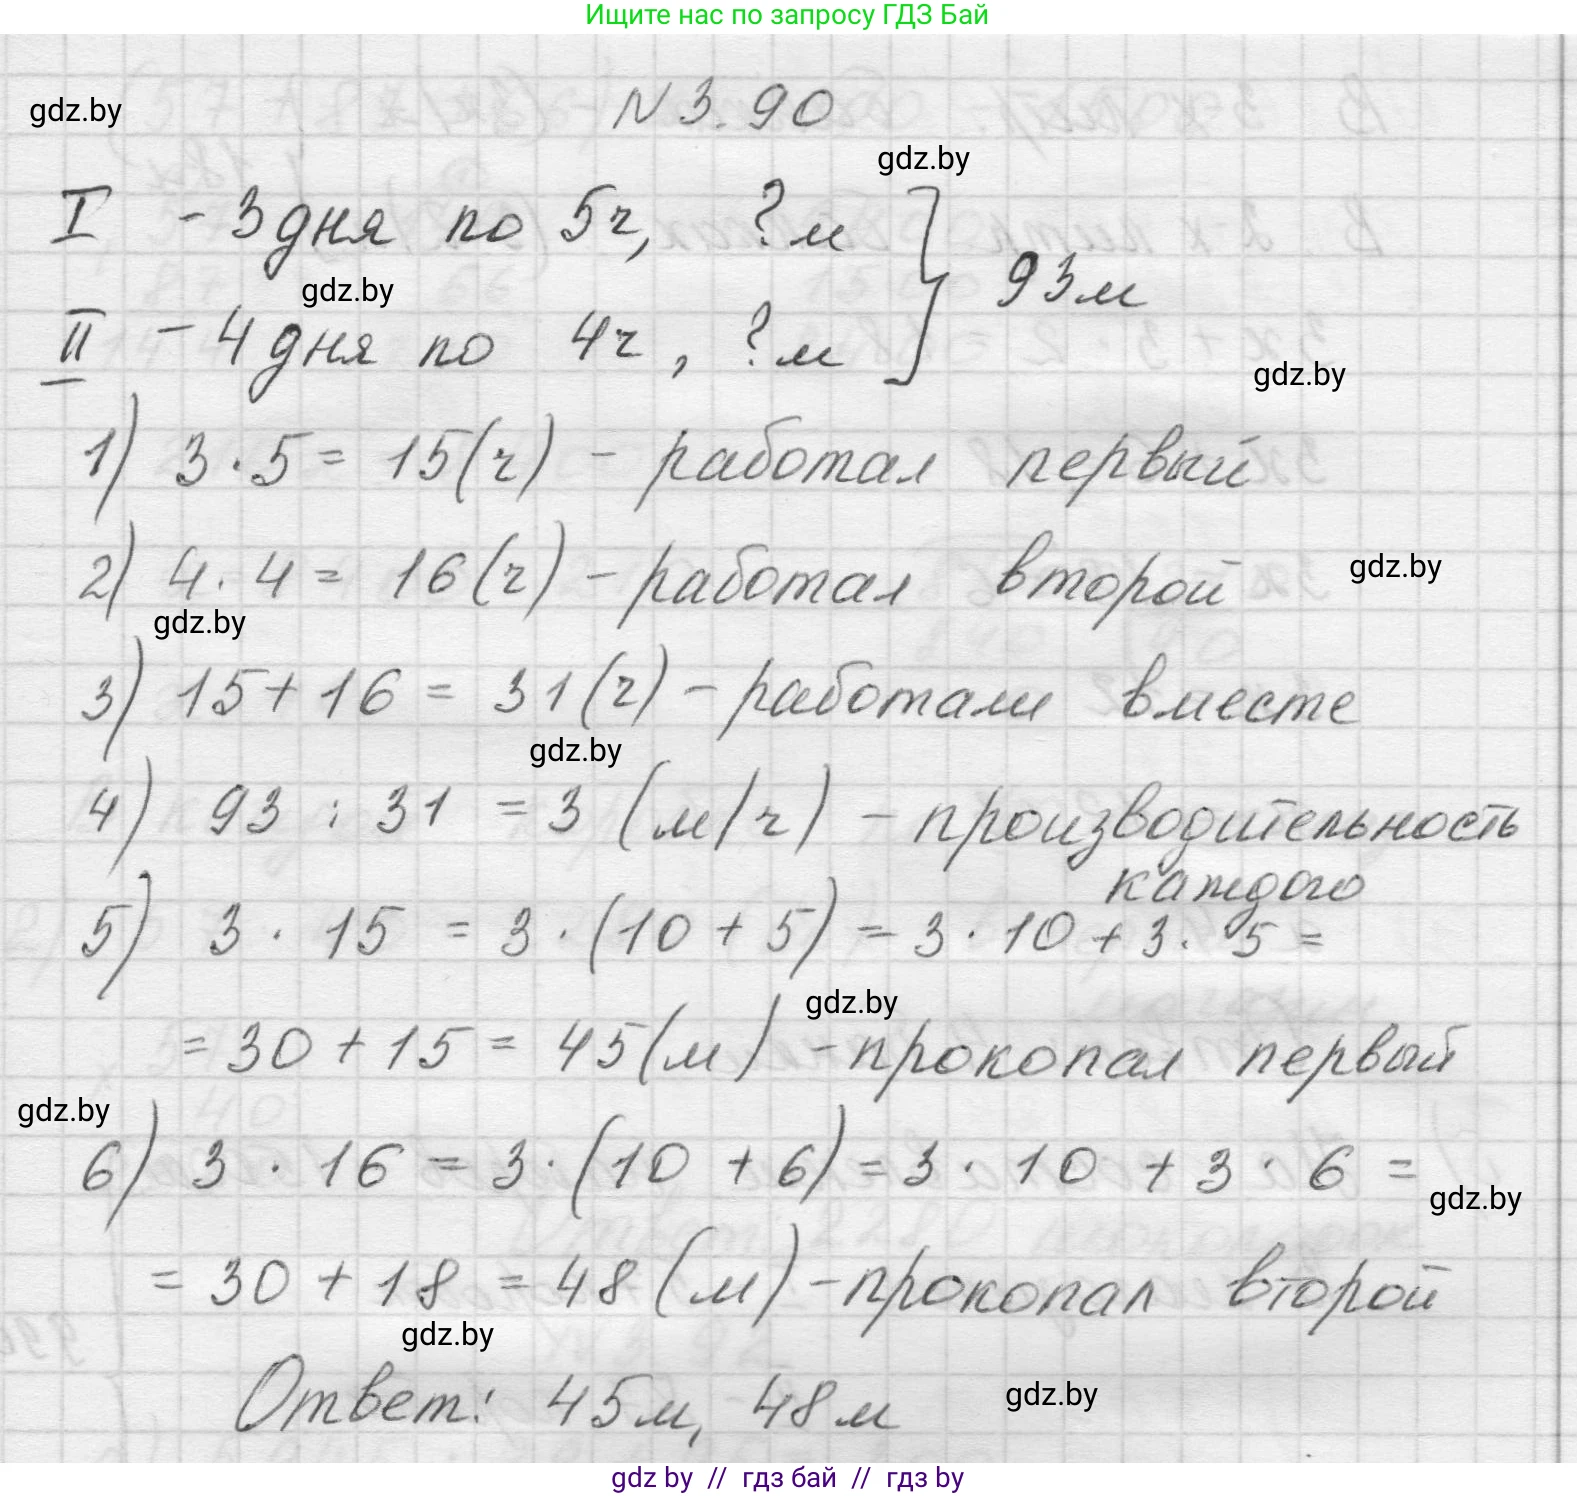 Ищите нас по запросу ГДЗ Бай
N 3.90
gdz.by
gdz.by
I - 3 дня по 5ч, ? м
93м
gdz.by
II - 4 дня по 4ч, ? м
gdz.by
1) 3 · 5 = 15(ч) - работал первый
2) 4 · 4 = 16(ч) - работал второй
gdz.by
gdz.by
3) 15 + 16 = 31(ч) - работали вместе
gdz.by
4) 93 : 31 = 3 (м/ч) - производительность
каждого
5) 3 · 15 = 3 · (10 + 5) = 3 · 10 + 3 · 5 =
gdz.by
= 30 + 15 = 45(м) - прокопал первый
gdz.by
6) 3 · 16 = 3 · (10 + 6) = 3 · 10 + 3 · 6 =
gdz.by
= 30 + 18 = 48(м) - прокопал второй
gdz.by
Ответ: 45м, 48м
gdz.by
gdz by // гдз бай // гдз by